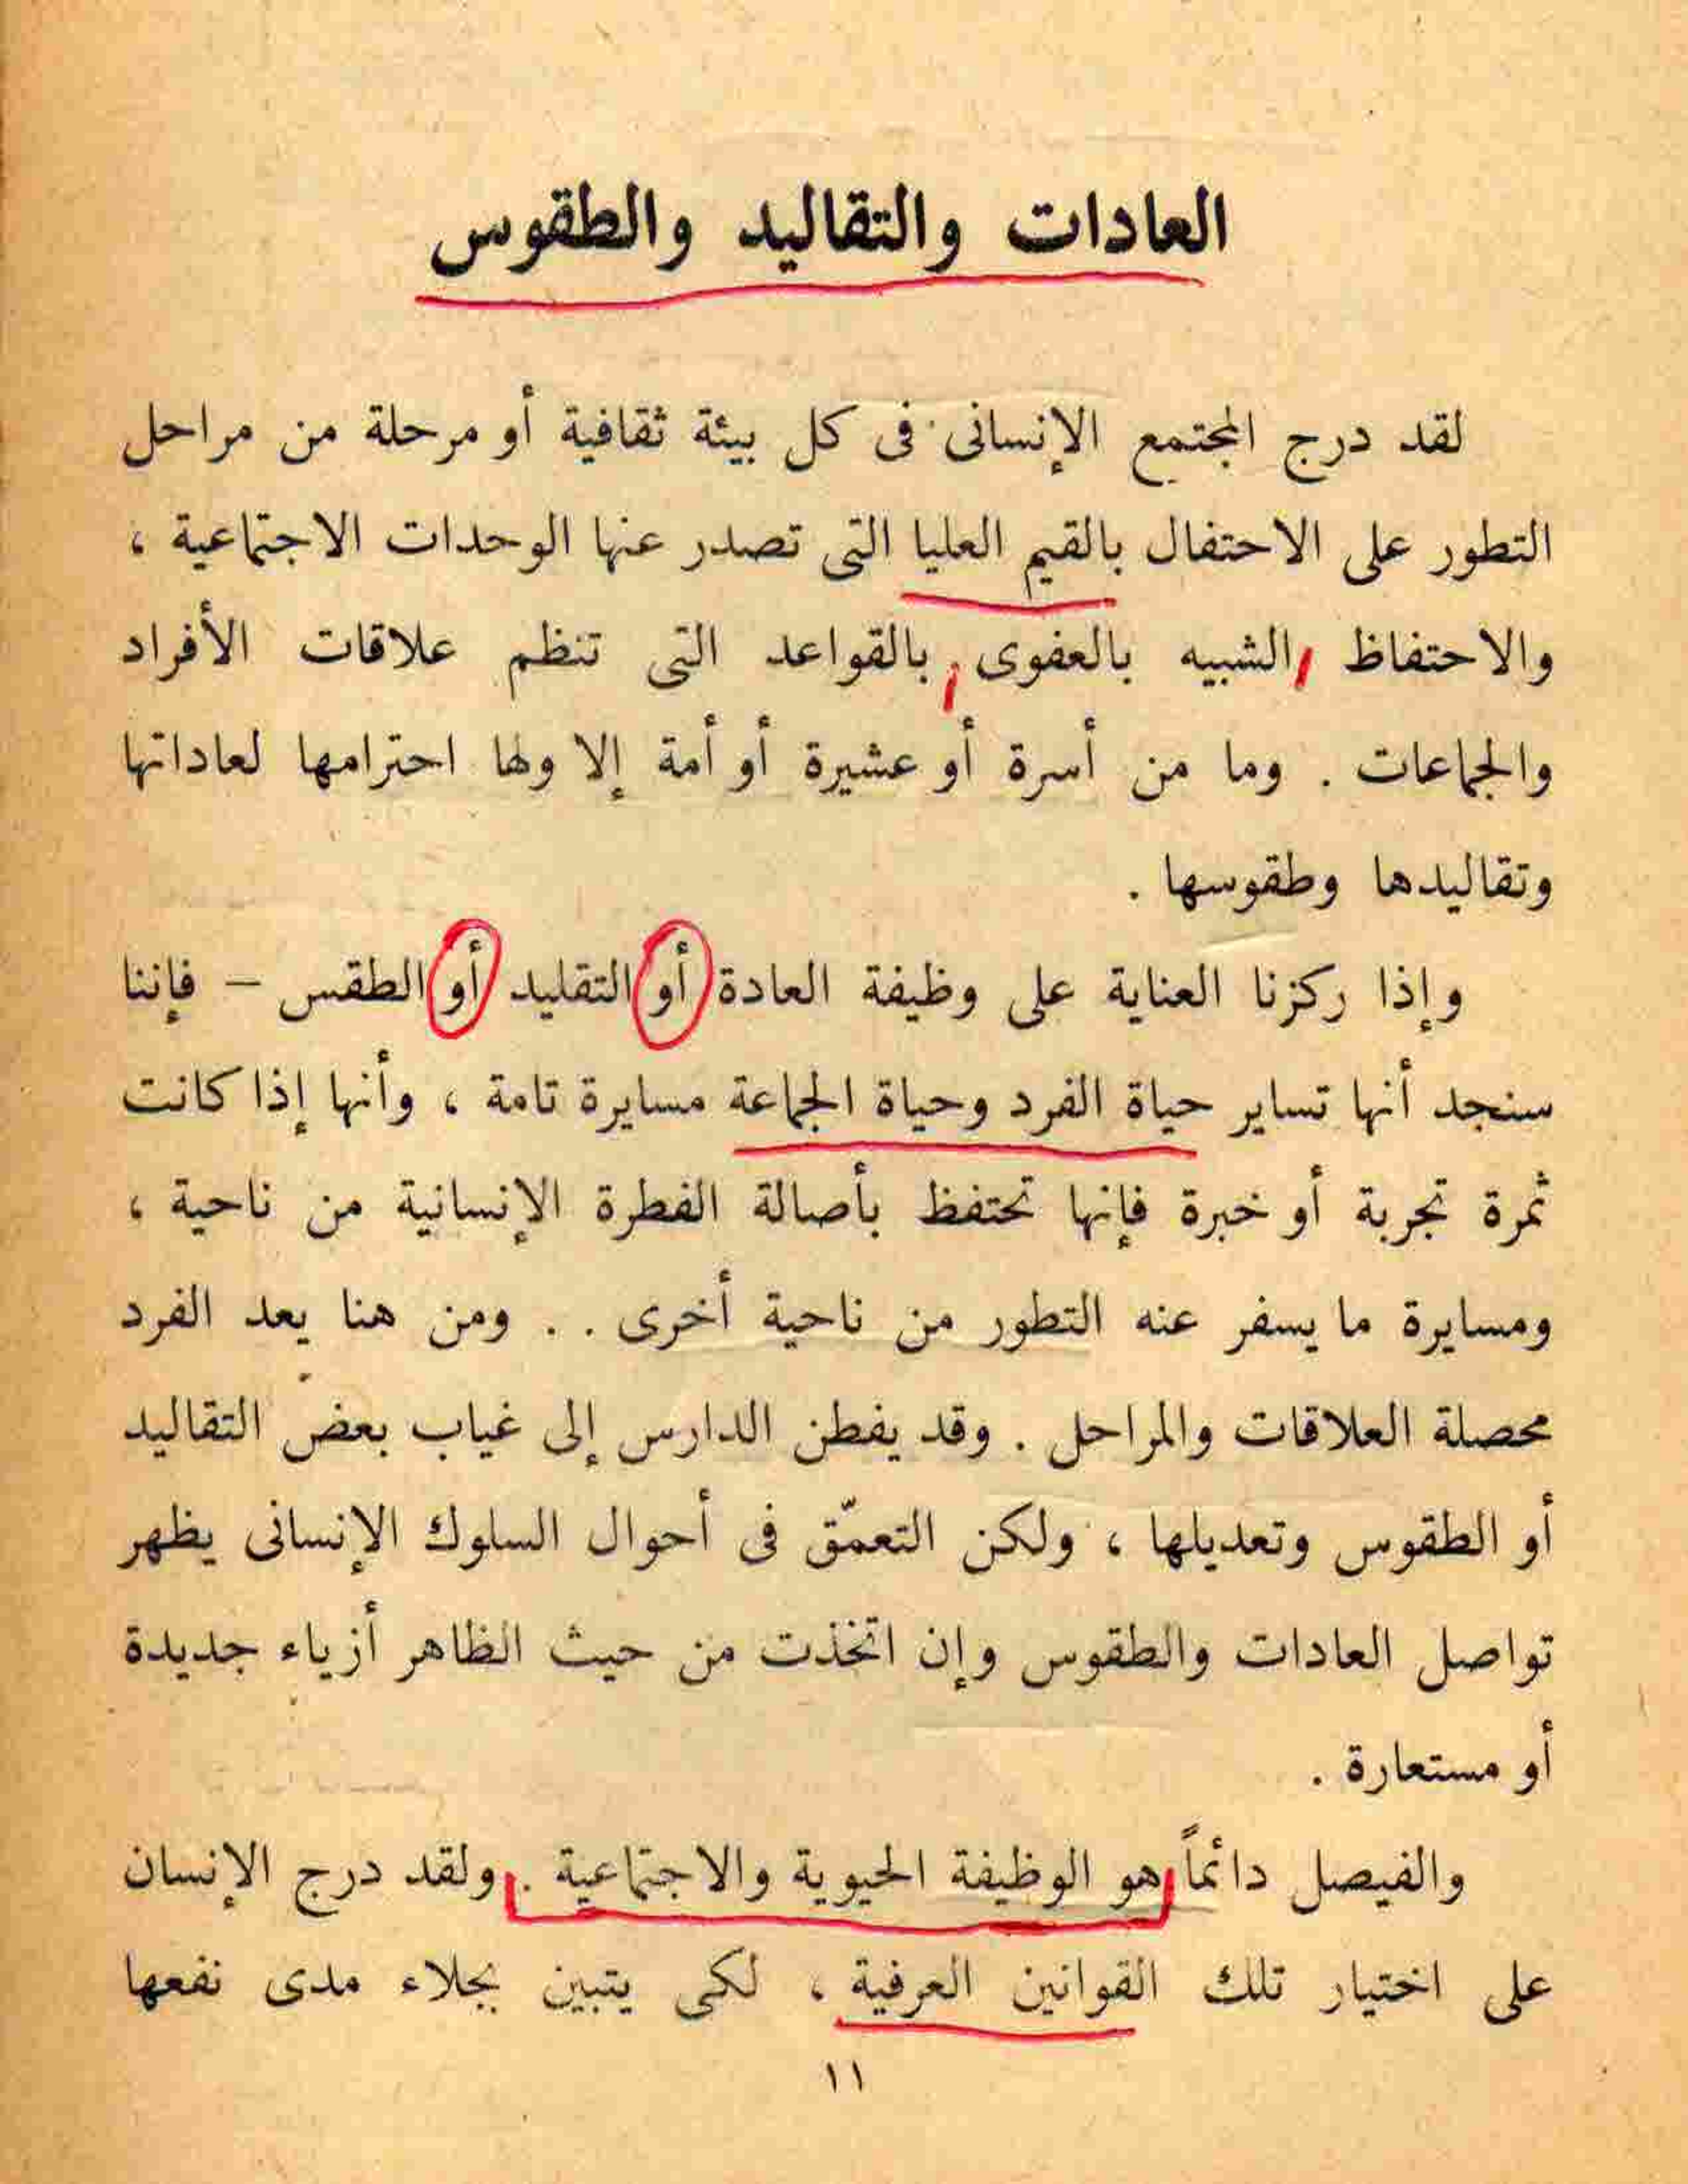 العادات والتقاليد والطقوس
لقد درج المجتمع الإنسانى فى كل بيئة ثقافية أو مرحلة من مراحل
التطور على الاحتفال بالقيم العليا التى تصدر عنها الوحدات الاجتماعية ،
والاحتفاظ الشبيه بالعفوى بالقواعد التى تنظم علاقات الأفراد
والجماعات . وما من أسرة أو عشيرة أو أمة إلا ولها احترامها لعاداتها
وتقاليدها وطقوسها .
وإذا ركزنا العناية على وظيفة العادة أو التقليد أو الطقس – فإننا
سنجد أنها تساير حياة الفرد وحياة الجماعة مسايرة تامة ، وأنها إذا كانت
ثمرة تجربة أو خبرة فإنها تحتفظ بأصالة الفطرة الإنسانية من ناحية ،
ومسايرة ما يسفر عنه التطور من ناحية أخرى . . ومن هنا يعد الفرد
محصلة العلاقات والمراحل . وقد يفطن الدارس إلى غياب بعض التقاليد
أو الطقوس وتعديلها ، ولكن التعمّق فى أحوال السلوك الإنسانى يظهر
تواصل العادات والطقوس وإن اتخذت من حيث الظاهر أزياء جديدة
أو مستعارة .
والفيصل دائماً هو الوظيفة الحيوية والاجتماعية . ولقد درج الإنسان
على اختيار تلك القوانين العرفية ، لكى يتبين بجلاء مدى نفعها
١١